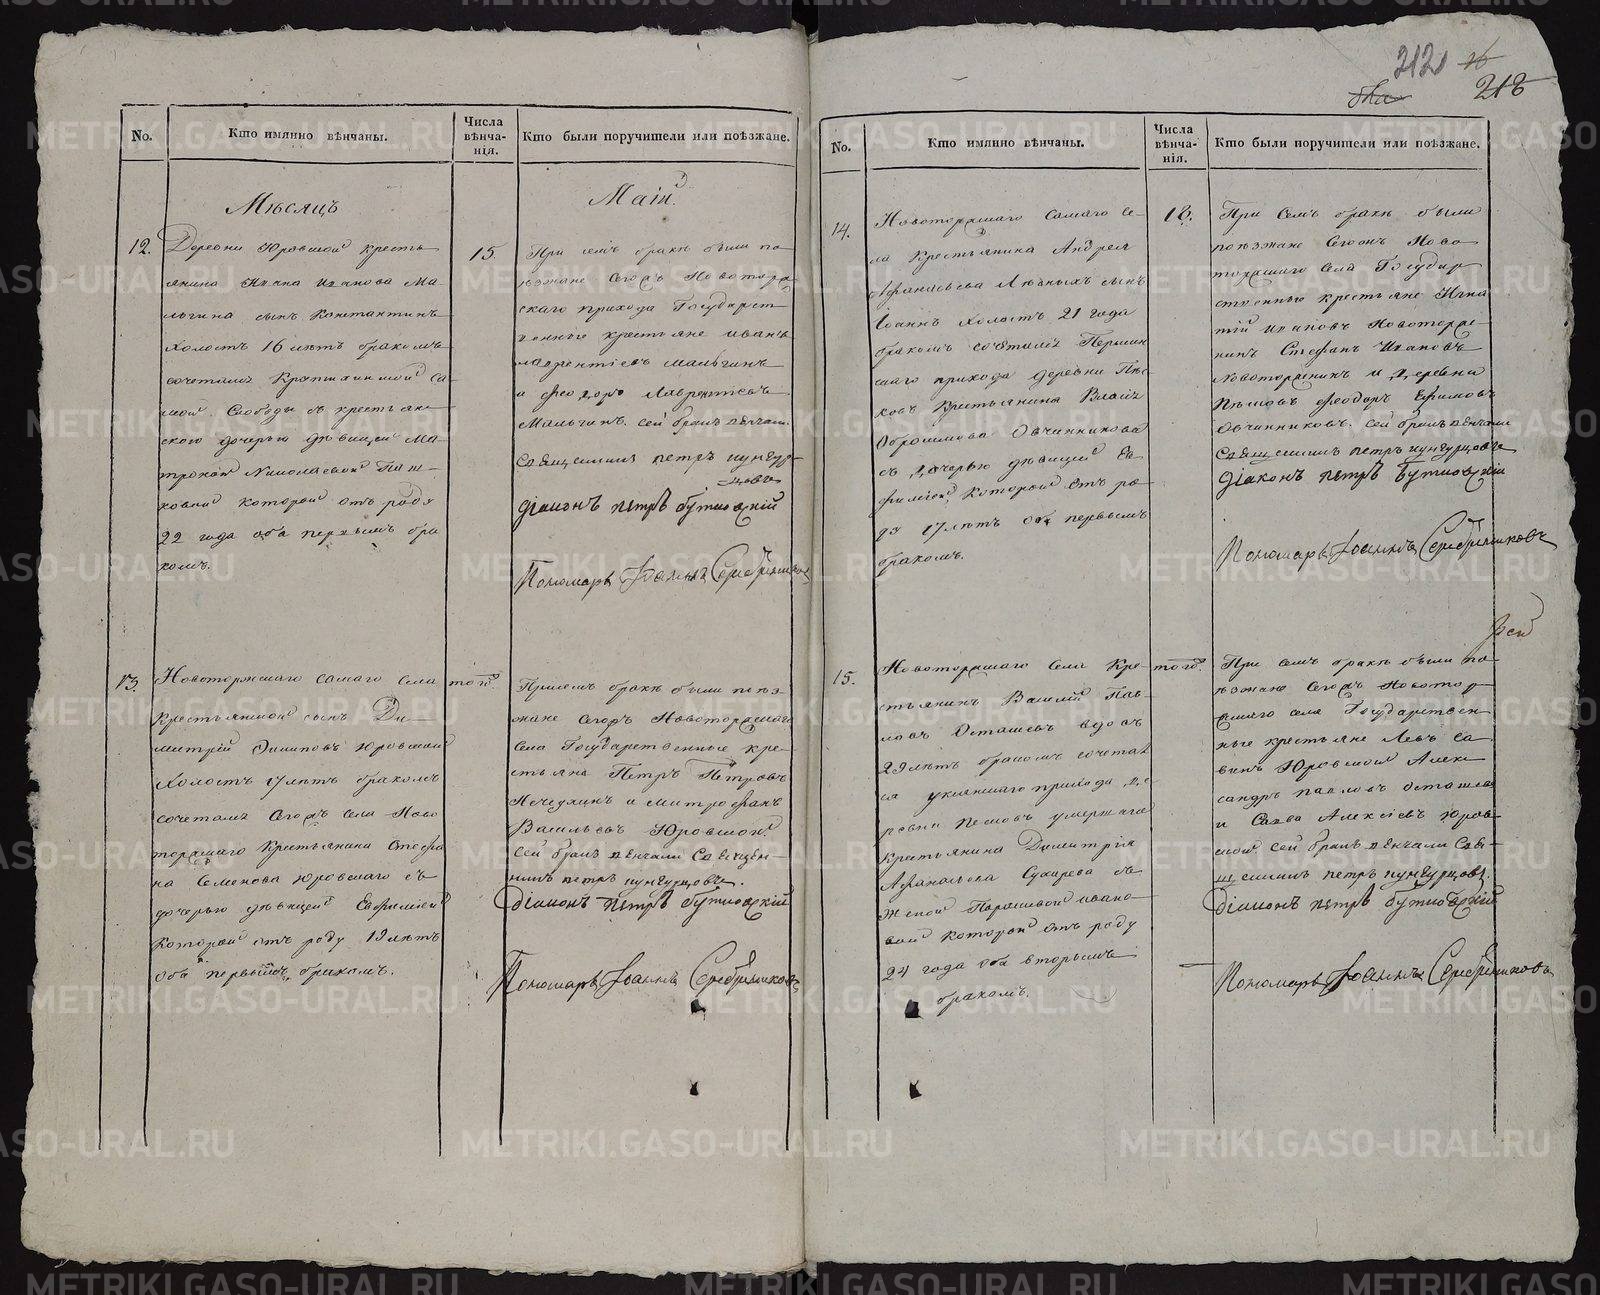 212 16
218
No.
Кто имянно вѣнчаны.
Числа вѣнча-нія.
Кто были поручители или поѣзжане.
Мѣсяцъ
Маій.
12.
Деревни Юровской кресть-
янина Ивана Иванова Ма-
льгина сынъ Константинъ
холостъ 16 лѣтъ бракомъ
сочетался
Слободы съ крестьян-
скою дочерью дѣвицею Ма-
троной Николаевой
которой отъ роду
22 года оба первымъ бра
комъ.
15.
При семъ бракѣ были по-
ѣзжане Сегожъ Новоторж-
скаго прихода Государст
венные крестьяне Иванъ
Лаврентіевъ Мальгинъ
и Феодоръ Лаврентіевъ
Мальгинъ. Сей бракъ вѣнчали
Священникъ Петръ Кунгур-
цовъ
Діаконъ Петръ
Пономарь Іоаннъ Серебренников
13.
Новоторжскаго самаго села
крестьянской сынъ Ди-
митрій Филиповъ Юровской
холостъ 17 лѣтъ бракомъ
сочетался Сегожъ Села Ново
торжскаго крестьянина Стефа
на Семенова Юровскаго съ
дочерью дѣвицей Евфимией
которой отъ роду 19 лѣтъ
Оба первымъ бракомъ.
того.
При семъ бракѣ были поѣз-
жане Сегожъ Новоторжскаго
Села Государственные кре-
стьяна Петръ Петровъ
и Митрофанъ
Васильевъ Юровской.
Сей бракъ вѣнчали Священ-
никъ Петръ Кунгурцовъ.
Діаконъ Петръ
Пономарь Іоаннъ Серебренниковъ
No.
Кто имянно вѣнчаны.
Числа вѣнча-нія.
Кто были поручители или поѣзжане.
14.
Новоторжскаго самаго Се-
ла Крестьянина Андрея
Афанасьева сынъ
Іоаннъ холостъ 21 года
бракомъ сочетался Першин
скаго прихода деревни Пѣс-
ковъ Крестьянина
Овчинникова
съ дочерью дѣвицей Ев-
фимией, которой отъ ро-
ду 17 лѣтъ оба первымъ
бракомъ.
18.
При Семъ бракѣ были
поѣзжане Сегожъ Ново
торжскаго Села Государ
ственные крестьяне Игна
тій Ивановъ Новоторже-
нинъ Стефанъ Ивановъ
Новоторженинъ и деревни
Феодоръ Ефимовъ
Овчинниковъ. Сей бракъ вѣнчали
Священникъ Петръ Кунгурцовъ
Діаконъ Петръ
Пономарь Іоаннъ Серебренниковъ
15.
Новоторжскаго Села Кре-
стьянинъ Василій Пав-
ловъ Осташевъ вдовъ
29 лѣтъ бракомъ сочетал
ся прихода де-
ревни умершаго
крестьянина Димитрія
Афанасьева Сухарева съ
женой Парасковой Ивано-
вой которой отъ роду
24 года оба вторымъ
бракомъ.
того.
При семъ бракѣ были по-
ѣзжане Сегожъ Новотор
жскаго села Государствен
ные крестьяне Левъ Са
винъ Юровской Алек-
сандръ Павловъ Осташевъ
и Савва Алексіевъ Юров-
ской. Сей бракъ вѣнчали Свя-
щенникъ Петръ Кунгурцовъ.
Діаконъ Петръ
Пономарь Іоаннъ Серебренниковъ
METRIKI.GASO-URAL.RU